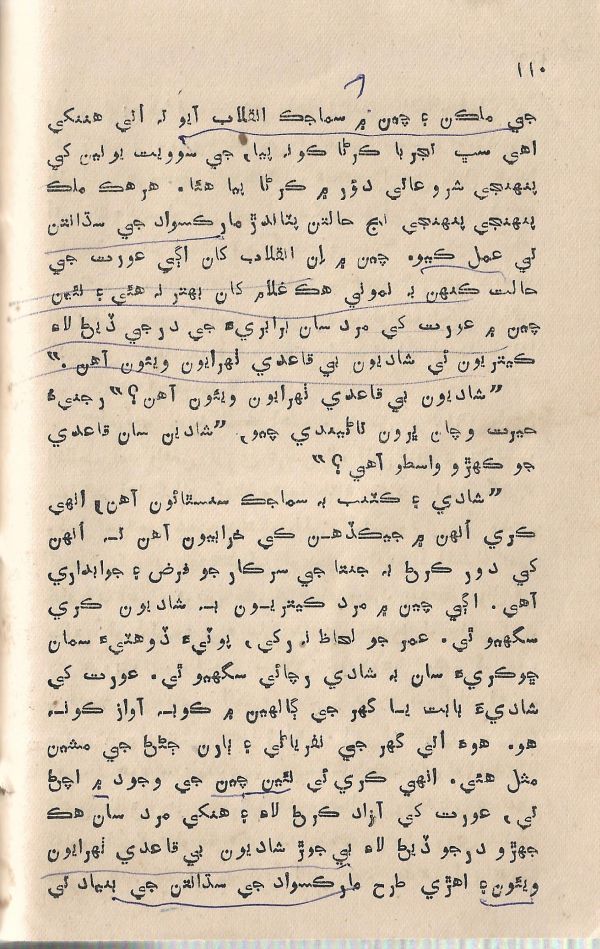 ١١٠
جي ملڪن ۽ چين ۾ سماجڪ انقلاب آيو تہ اُتي هنکي
اهي سڀ تجربا ڪرڻا ڪونہ پيا، جي سوويت يونين کي
پنهنجي شروعاتي دؤر ۾ ڪرڻا پيا هئا. هرهڪ ملڪ
پنهنجي پنهنجي اڄ حالتن پٽاندڙ مارڪسواد جي سڌانتن
تي عمل ڪيو. چين ۾ اِن انقلاب کان اڳي عورت جي
حالت ڪنهن بہ نموني هڪ غلام کان بهتر نہ هئي ۽ نئين
چين ۾ عورت کي مرد سان برابريءَ جي درجي ڏيڻ لاءِ
ڪيتريون ئي شاديون بي قاعدي ٺهرايون ويئون آهن.”
”شاديون بي قاعدي ٺهرايون ويئون آهن؟“ رجنيءَ
حيرت وچان ڀرون تاڻيندي چيو، ”شادين سان قاعدي
جو ڪهڙو واسطو آهي؟“
”شادي ۽ ڪٽنب بہ سماجڪ سنسٿائون آهن، اُنهي
ڪري اُنهن ۾ جيڪڏهـن ڪي خرابيون آهن تـہ اُنهن
کي دور ڪرڻ بہ جنتا جي سرڪار جو فرض ۽ جوابداري
آهي. اڳي چين ۾ مرد ڪيتريـون بـہ شاديون ڪري
سگهيو ٿي. عمر جو لحاظ نہ رکي، پوٽيءَ ڏوهٽيءَ سمان
ڇوڪريءَ سان بہ شادي رچائي سگهيو ٿي. عورت کي
شاديءَ بابت يـا گهر جي ڳالهين ۾ ڪوبـہ آواز ڪونـہ
هو. هوءَ اُتي گهر جي نفرياڻي ۽ ٻارن ڄڻڻ جي مشين
مثل هئي. انهي ڪري ئي نئين چين جي وجود ۾ اچڻ
تي، عورت کي آزاد ڪرڻ لاءِ ۽ هنکي مرد سان هڪ
جهڙو درجو ڏيڻ لاءِ بي جوڙ شاديون بي قاعدي ٺهرايون
ويئون ۽ اهڙي طرح مارڪسواد جي سڌانتن جي بنياد تي